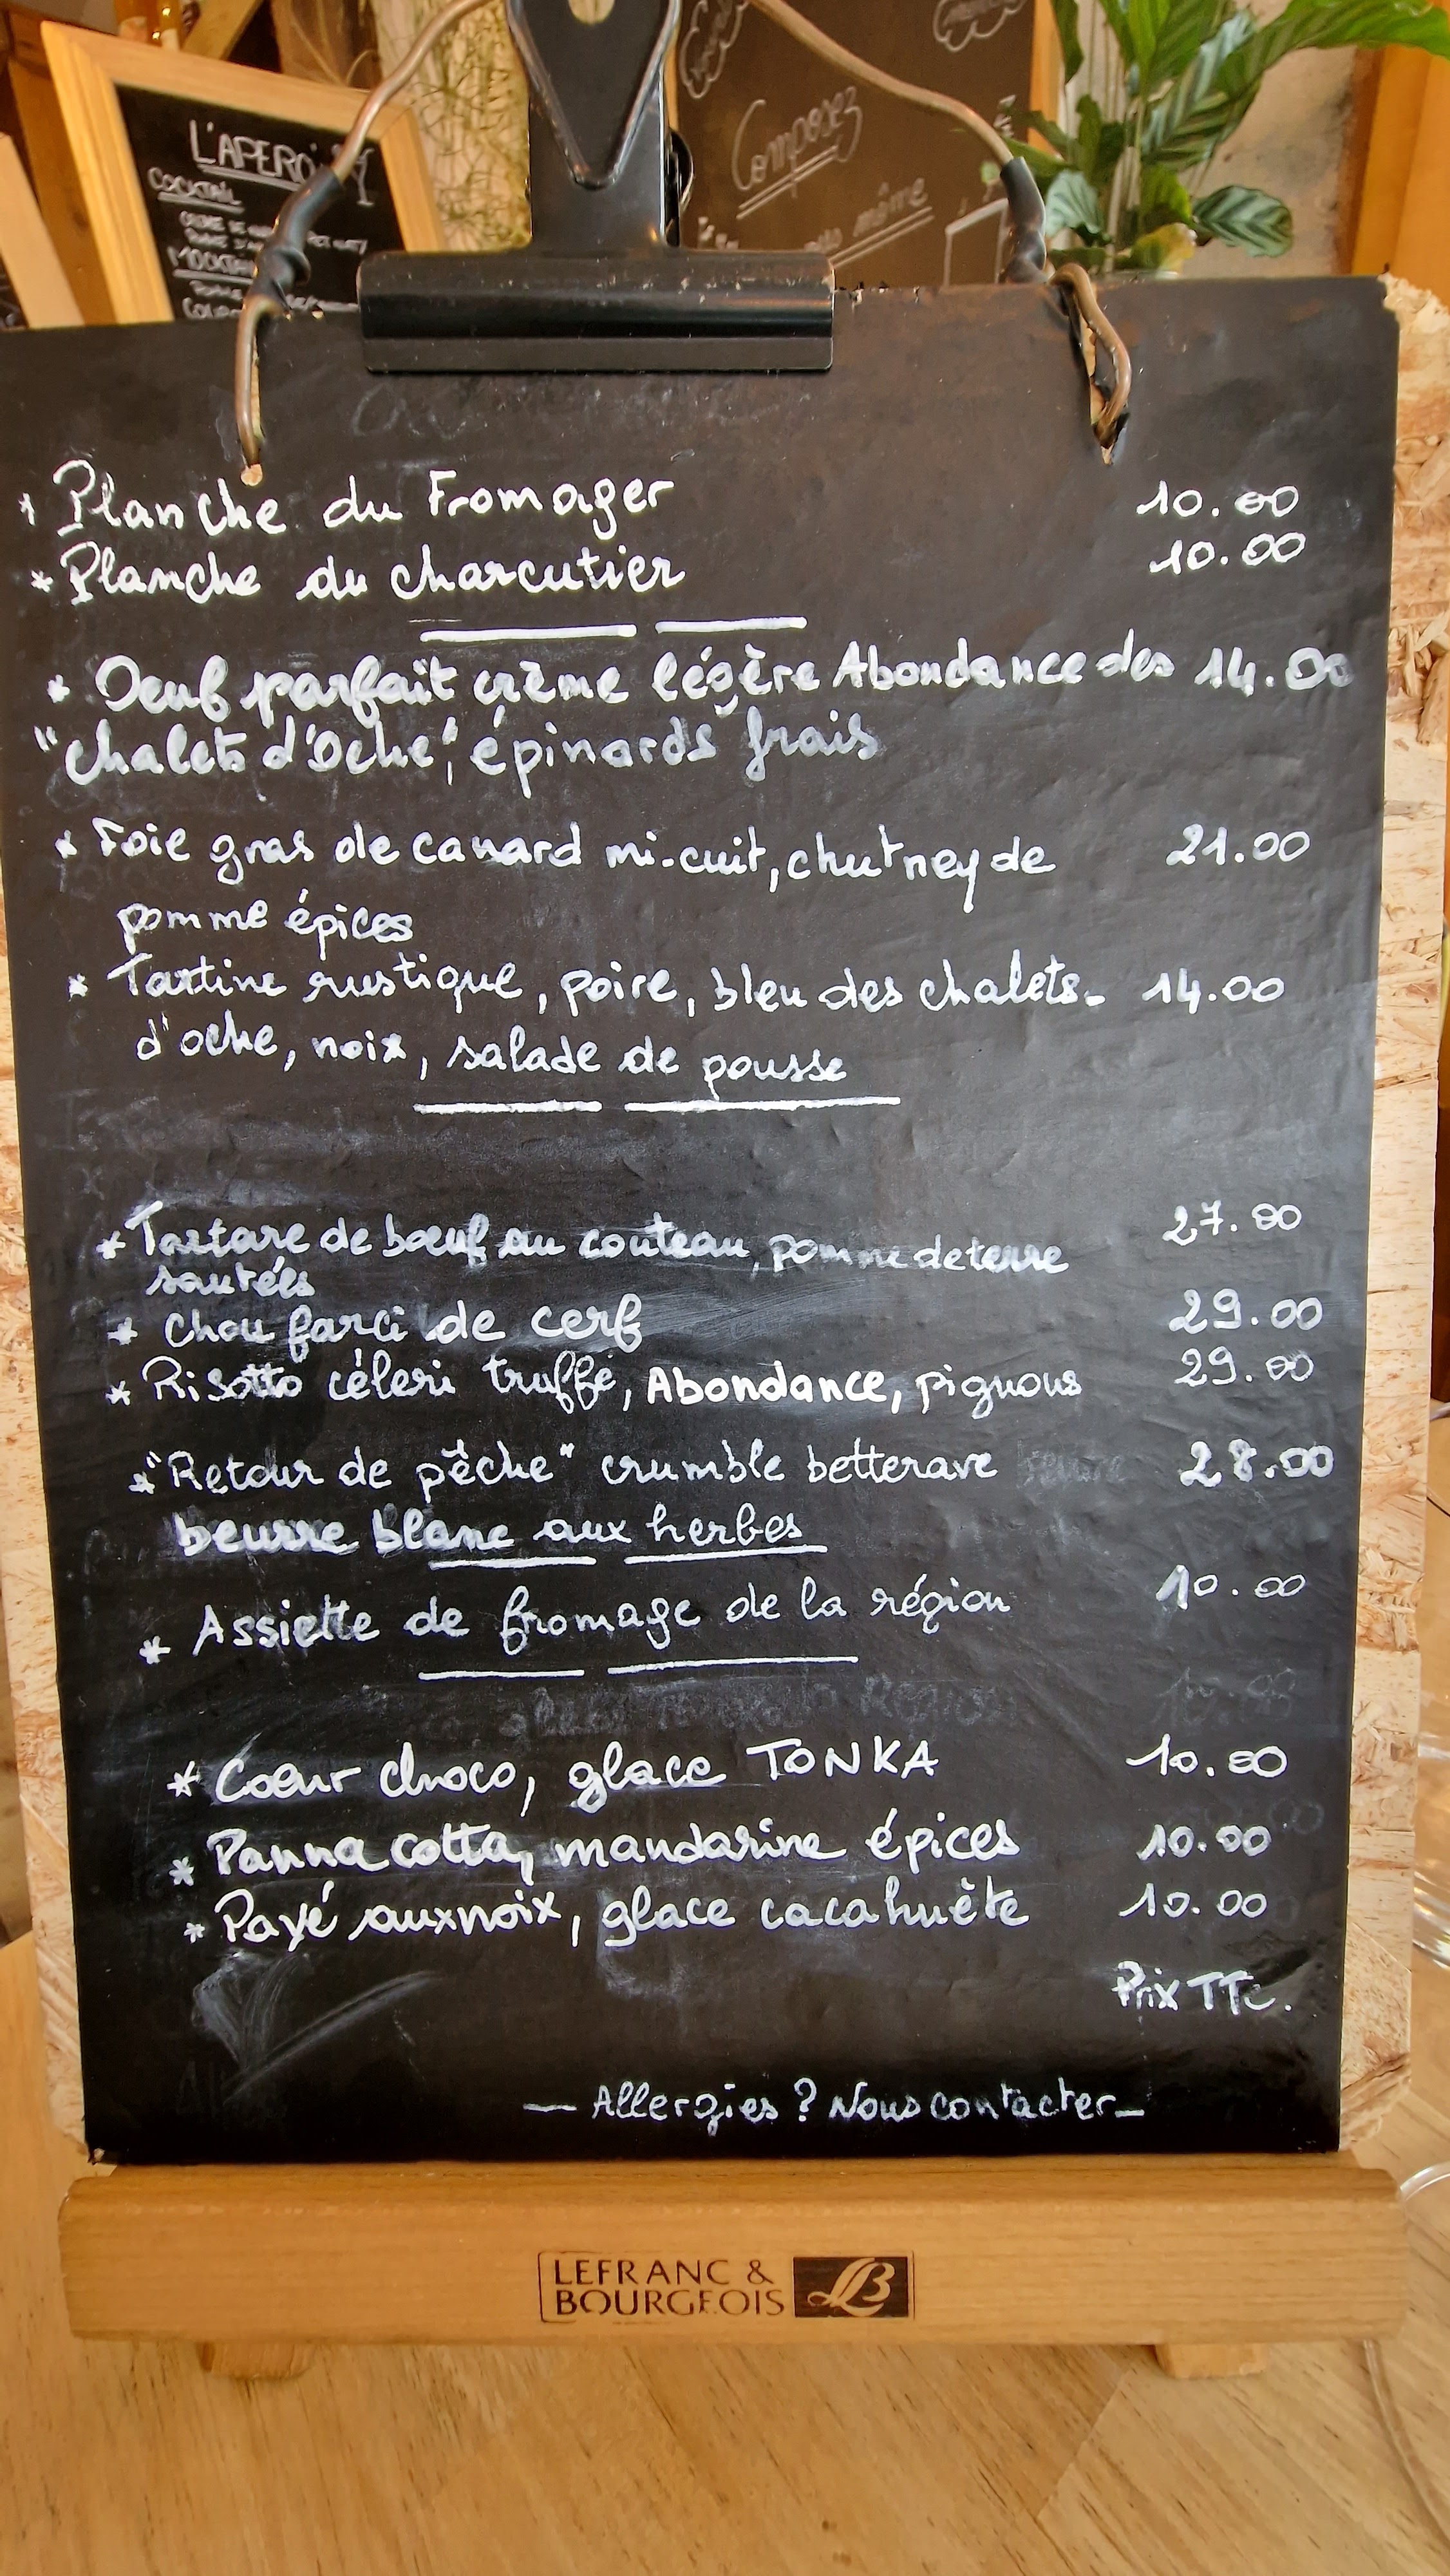 L'APERO
COCKTAIL
MOCKTAIL
Composez
même
* Planche du Fromager 10.00
* Planche du charcutier 10.00
* Oeuf parfait crème légère Abondance des 14.00
"chalets d'Oche", épinards frais
* Foie gras de canard mi-cuit, chutney de 21.00
pomme épices
* Tartine rustique, poire, bleu des chalets- 14.00
d'oche, noix, salade de pousse
* Tartare de boeuf au couteau, pomme de terre 27.00
sautées
* Chou farci de cerf 29.00
* Risotto céleri truffé, Abondance, pignons 29.00
* "Retour de pêche" crumble betterave 28.00
beurre blanc aux herbes
* Assiette de fromage de la région 10.00
* Coeur choco, glace TONKA 10.00
* Panna cotta, mandarine épices 10.00
* Pavé aux noix, glace cacahuète 10.00
Prix TTc.
— Allergies ? Nous contacter —
LEFRANC &
BOURGEOIS LB